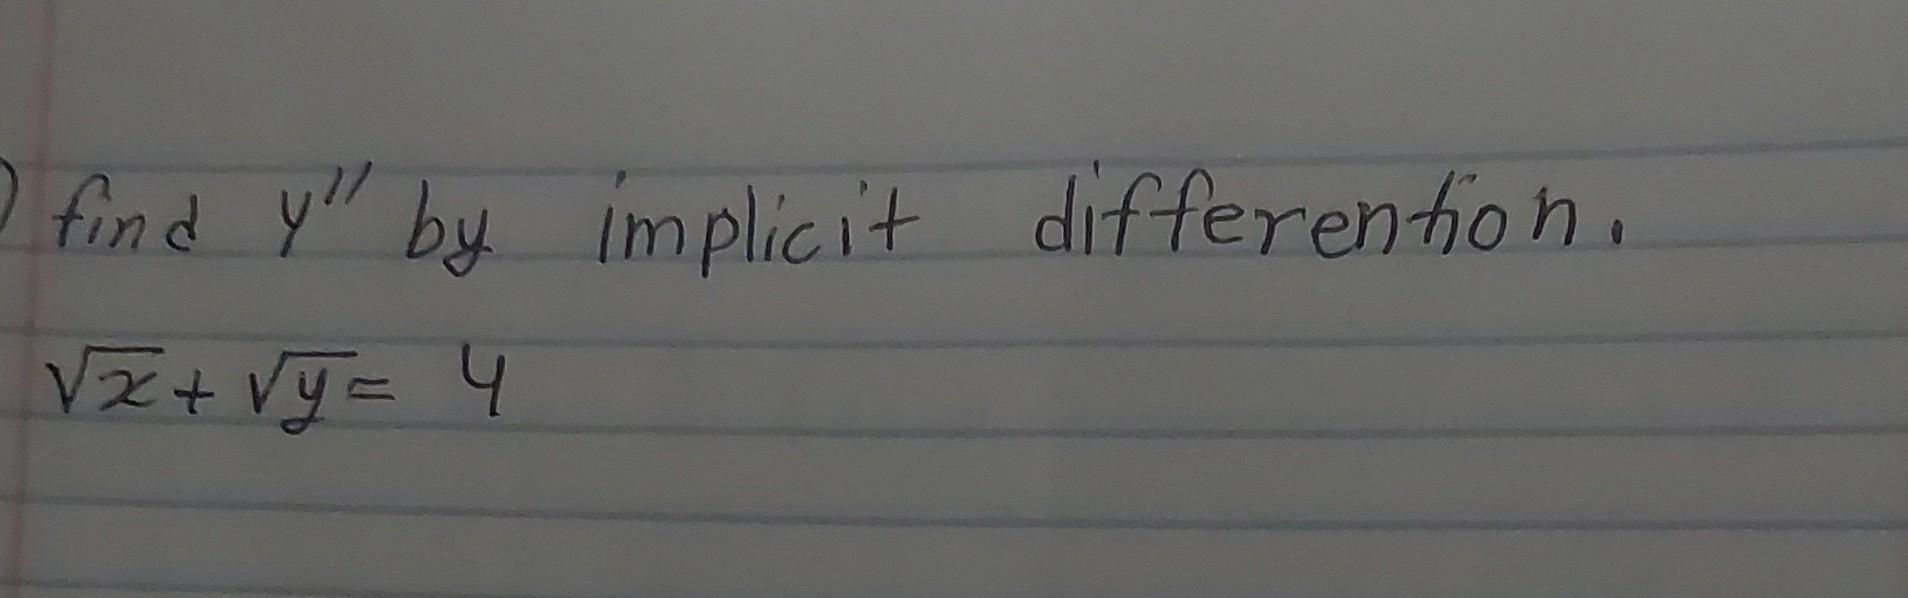 ) find y" by implicit differention.
√x + √y = 4